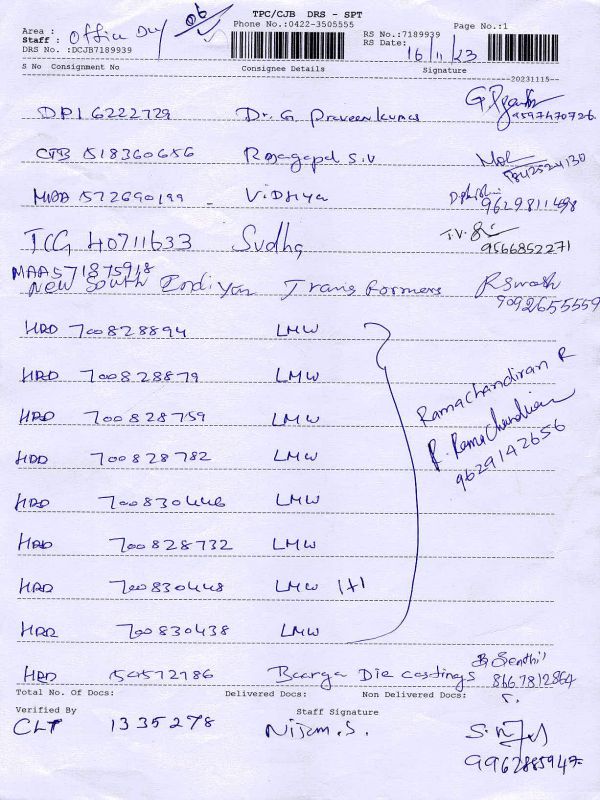 TPC/CJB DRS - SPT
Area :
Phone No.:0422-3505555
Page No.:1
Staff : Office Dly
RS No.:7189939
DRS No. :DCJB7189939
RS Date: 16/11/23
S No Consignment No Consignee Details Signature
20231115
DPI 6222729 Dr. G. Praveenkumar
9597470726
CTB 518360656 Rajagopal S.V
9842524130
MAA 572690199 - Vidhya
9629811498
TCG 40711633 Sudha T.V.
9566852271
MAA571875918
New South Indiyan Transformers R Suresh
9092655559
HRD 700828894 LMW
HRD 700828879 LMW
HRD 700828759 LMW
Ramachandiran R
R. Ramachandiran
9629142656
HRD 700828782 LMW
HRD 700830446 LMW
HRD 700828732 LMW
HRD 700830448 LMW 1+1
HRD 700830438 LMW
HRD 154572786 Baarga Die castings Senthil
8667812864
Total No. Of Docs: Delivered Docs: Non Delivered Docs:
Verified By Staff Signature
CLT 1335278 Nijam.S.
9962885947